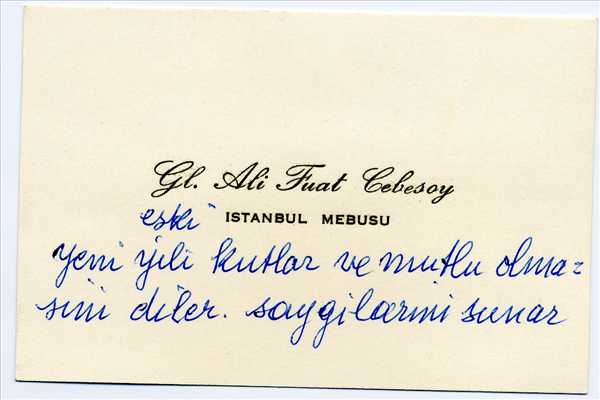 Gl. Ali Fuat Cebesoy
eski ISTANBUL MEBUSU
yeni yıli kutlar ve mutlu olma=
sini diler. saygilarıni sunar